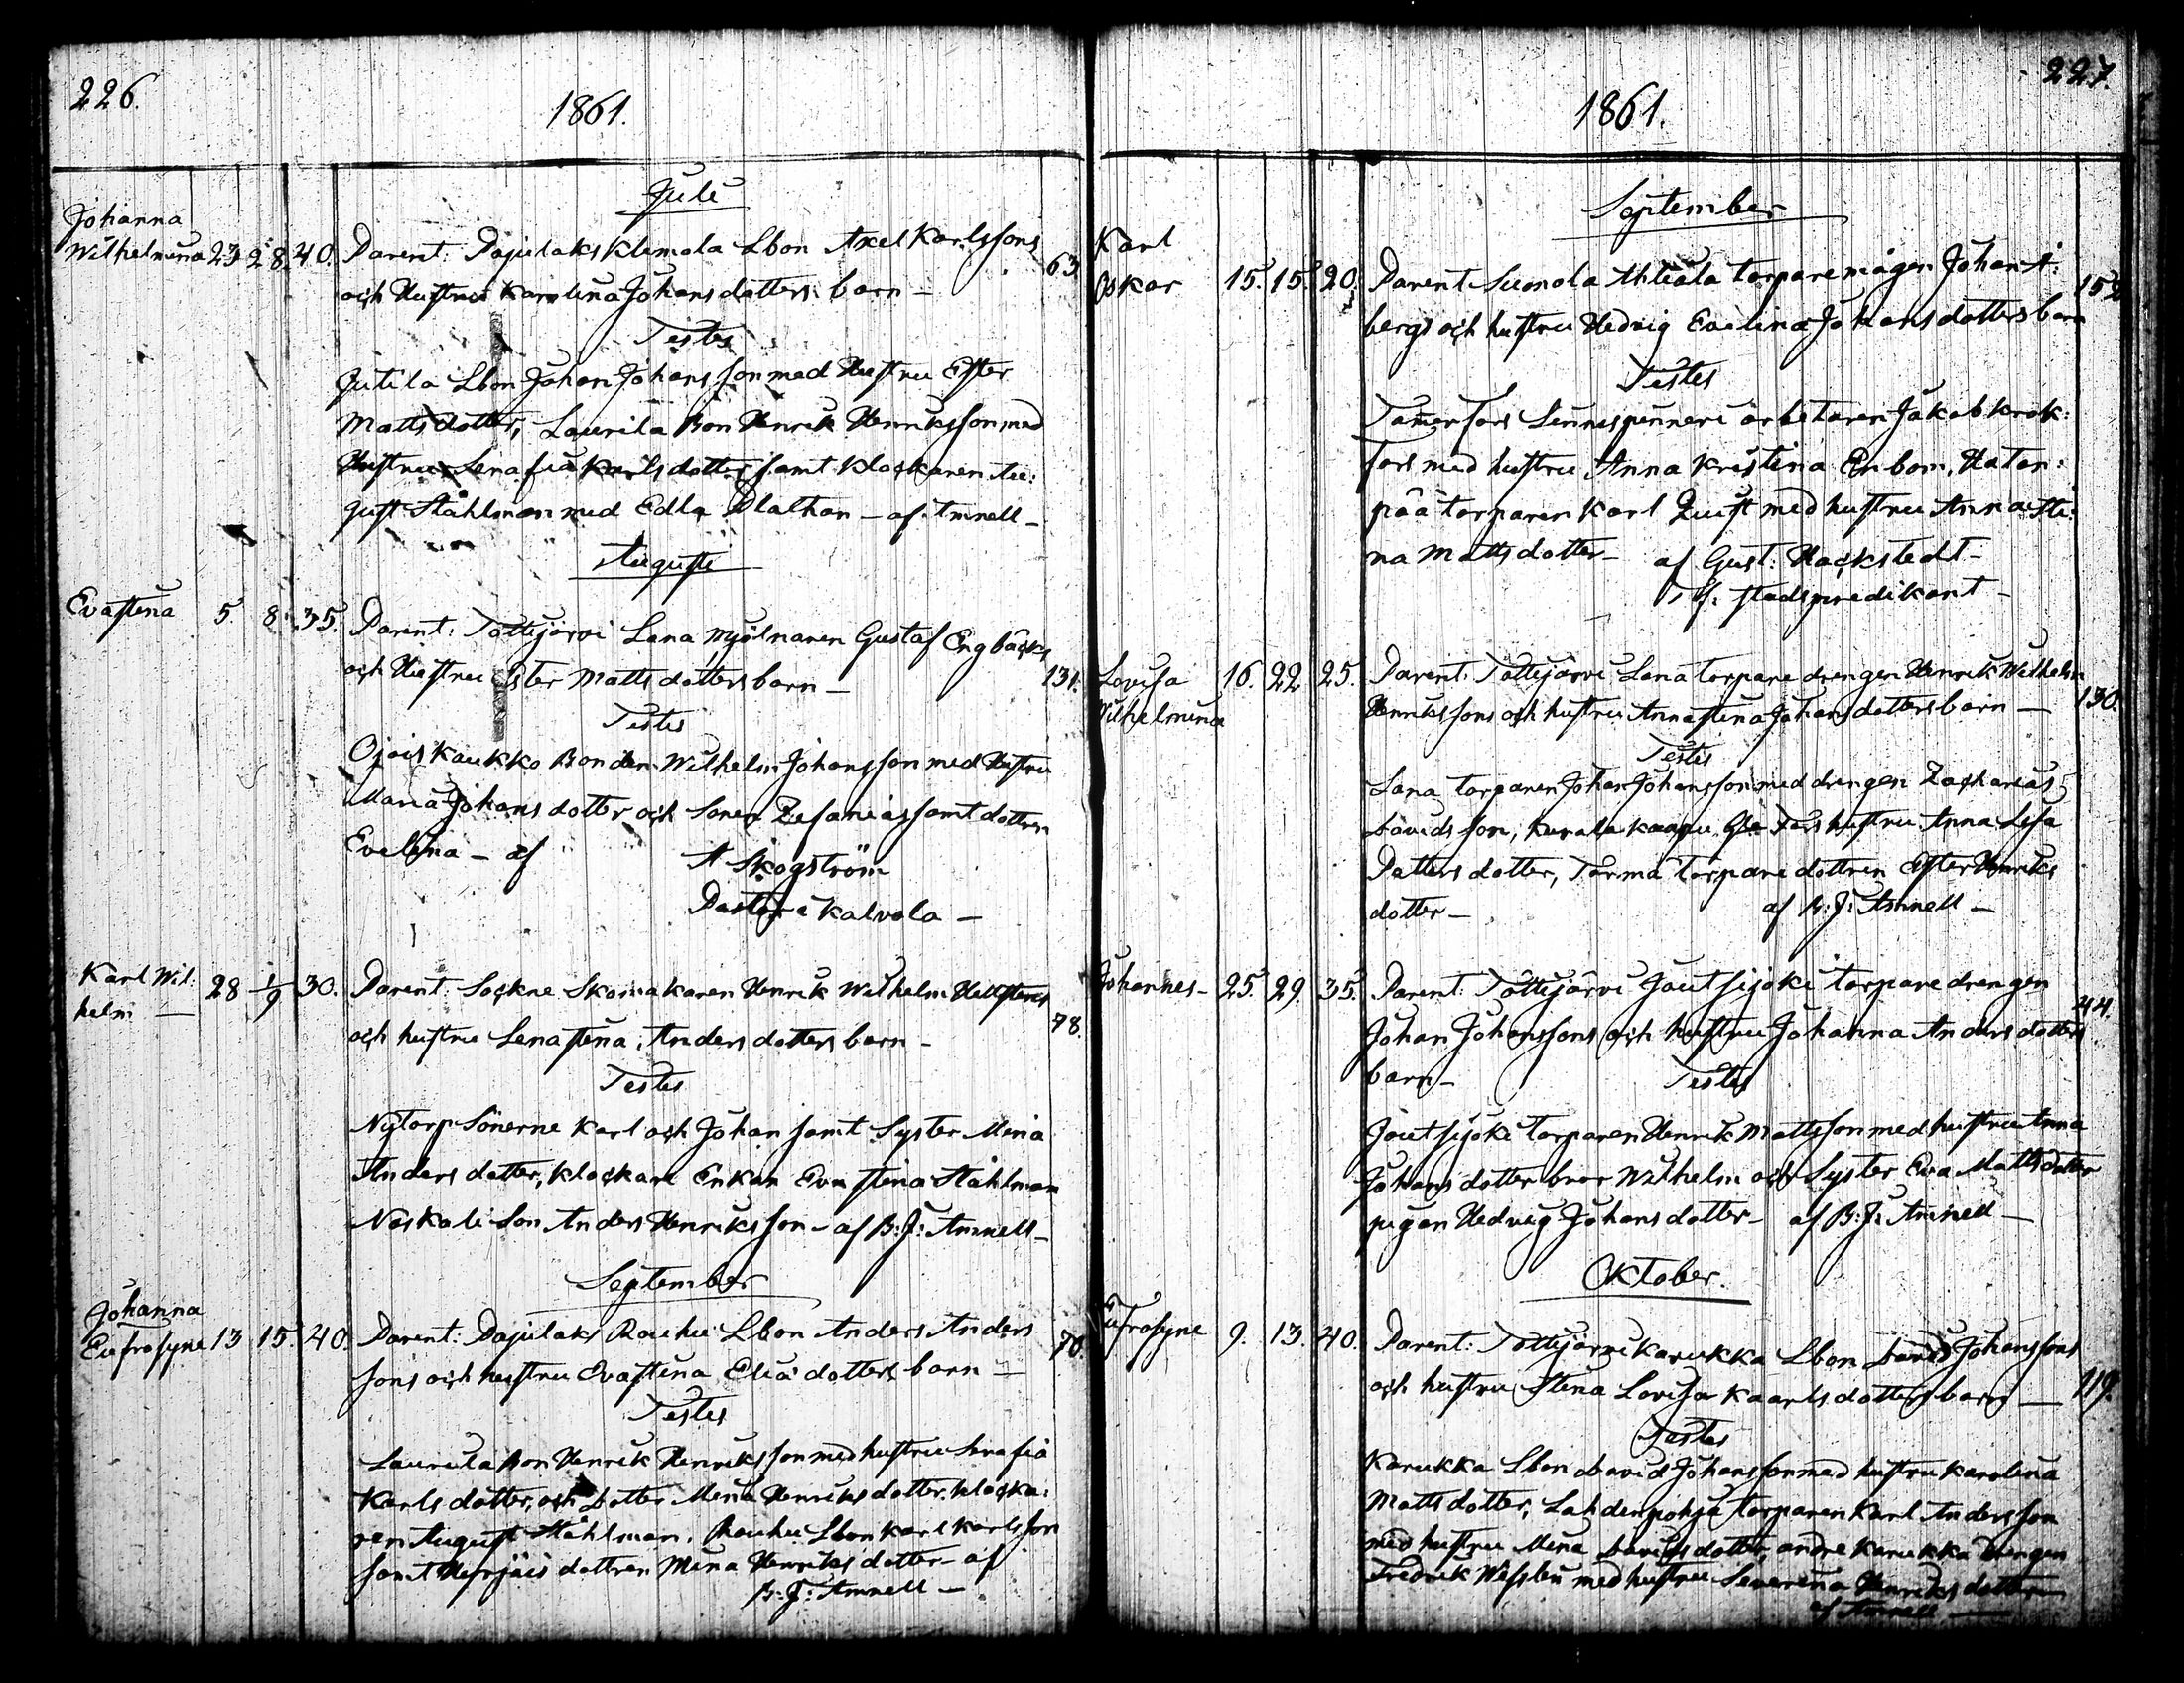 226.
1861.
Juli
Johanna
Wilhelmina 23 28. 40. Parent: Pajulaks Klemola Lbon Axel Karlssons 63.
och Hustrus Karolina Johansdotters barn —
Testes
Jutila Lbon Johan Johansson med Hustru Ester
Mattsdotter, Laurila Bon Henrik Henriksson med
Hustru Lenafia Karlsdotter samt Klockaren Au:
gust Ståhlman med Edla — af Amnell —
Augusti
Evastina 5 8. 35. Parent: Tottijärvi Lana mjölnaren Gustaf Engbäcks
och Hustru Ester Mattsdotters barn — 131.
Testes
Ojois Kaukko Bonden Wilhelm Johansson med Hustru
Maria Johansdotter och Sonen Zefanias samt dottren
Evelina — af A Skogström
Pastor i Kalvola —
Karl Wil:
helm — 28 1/9 30. Parent: Sockne Skomakaren Henrik Wilhelm Hellstens
och hustru Lenastina Andersdotters barn — 78.
Testes
Nytorp Sönerne Karl och Johan samt Syster Mina
Andersdotter, Klockare Enkan Evastina Ståhlman
Naskali Son Anders Henriksson — af B: J: Amnell —
September
Johanna
Eufrosyne 13 15. 40. Parent: Pajulaks Rouhu Lbon Anders Anders 70.
sons och hustru Evastina Eliædotters barn —
Testes
Laurila Bon Henrik Henriksson med hustru Serafia
Karlsdotter, och dotter Mina Henriksdotter, klocka:
ren August Ståhlman, Rouhu Lbon Karl Karlsson
samt dottren Mina Henriksdotter — af
B: J: Amnell —
227.
1861.
September
Karl
Oskar 15. 15. 20. Parent: Suonola Ahtiala torpare mågen Johan A: 152
bergs och hustru Hedvig Evelina Johansdotters barn
Testes
Tammerfors Linnespinneri arbetaren Jakob Krok:
fors med hustru Anna Kristina Enbom, Hatan:
pää torparen Karl Quist med hustru Anna Sti:
na Mattsdotter — af Gust: Hackstedt —
Tf: stadspredikant —
Lovisa
Wilhelmina 16. 22 25. Parent: Tottijärvi Lana torpare drengen Henrik Wilhelm
Henrikssons och hustru Annastina Johansdotters barn — 130.
Testes
Lana torparen Johan Johansson med drengen Zacharias
Davidsson, hustru Anna Lisa
Pettersdotter, Tormä torpare dottren Ester Henriks
dotter — af B: J: Amnell —
Johannes — 25. 29. 35. Parent: Tottijärvi Joutsijoki torpare drengen 44.
Johan Johanssons och hustru Johanna Andersdotters
barn — Testes
Joutsijoki torparen Henrik Mattsson med hustru Anna
Johansdotter bror Wilhelm och Syster Eva Mattsdotter
pigan Hedvig Johansdotter — af B: J: Amnell —
Oktober.
Eufrosyne 9. 13. 40. Parent: Tottijärvi Karukka Lbon David Johanssons
och hustru Stina Lovisa Kaarlsdotters barn — 119.
Testes
Karukka Lbon David Johansson med hustru Karolina
Mattsdotter, Lahdenpohja torparen Karl Andersson
med hustru Mina Davidsdotter, andre Karukka Drengen
Fredrik Wesslin med hustru Severina Henriksdotter
af Amnell —